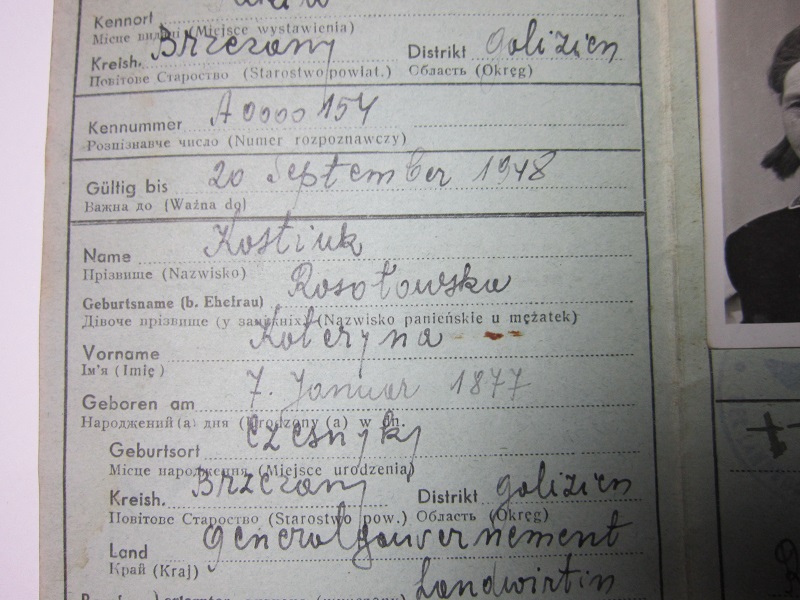 Kennort
Місце видачі (Miejsce wystawienia)
Kreish. Brzeżany Distrikt Galizien
Повітове Староство (Starostwo powiat.) Область (Okręg)
Kennummer A0000154
Розпізнавче число (Numer rozpoznawczy)
Gültig bis 20 September 1948
Важна до (Ważna do)
Name Kostiuk
Прізвище (Nazwisko)
Geburtsname (b. Ehefrau) Rosołowska
Дівоче прізвище (у заміжніх) (Nazwisko panieńskie u mężatek)
Vorname Kateryna
Ім'я (Imię)
Geboren am 7. Januar 1877
Народжений (а) дня (Urodzony (a) w dn.
Geburtsort Czesnyky
Місце народження (Miejsce urodzenia)
Kreish. Brzeżany Distrikt Galizien
Повітове Староство (Starostwo pow.) Область (Okręg)
Land Generalgouvernement
Край (Kraj)
Landwirtin